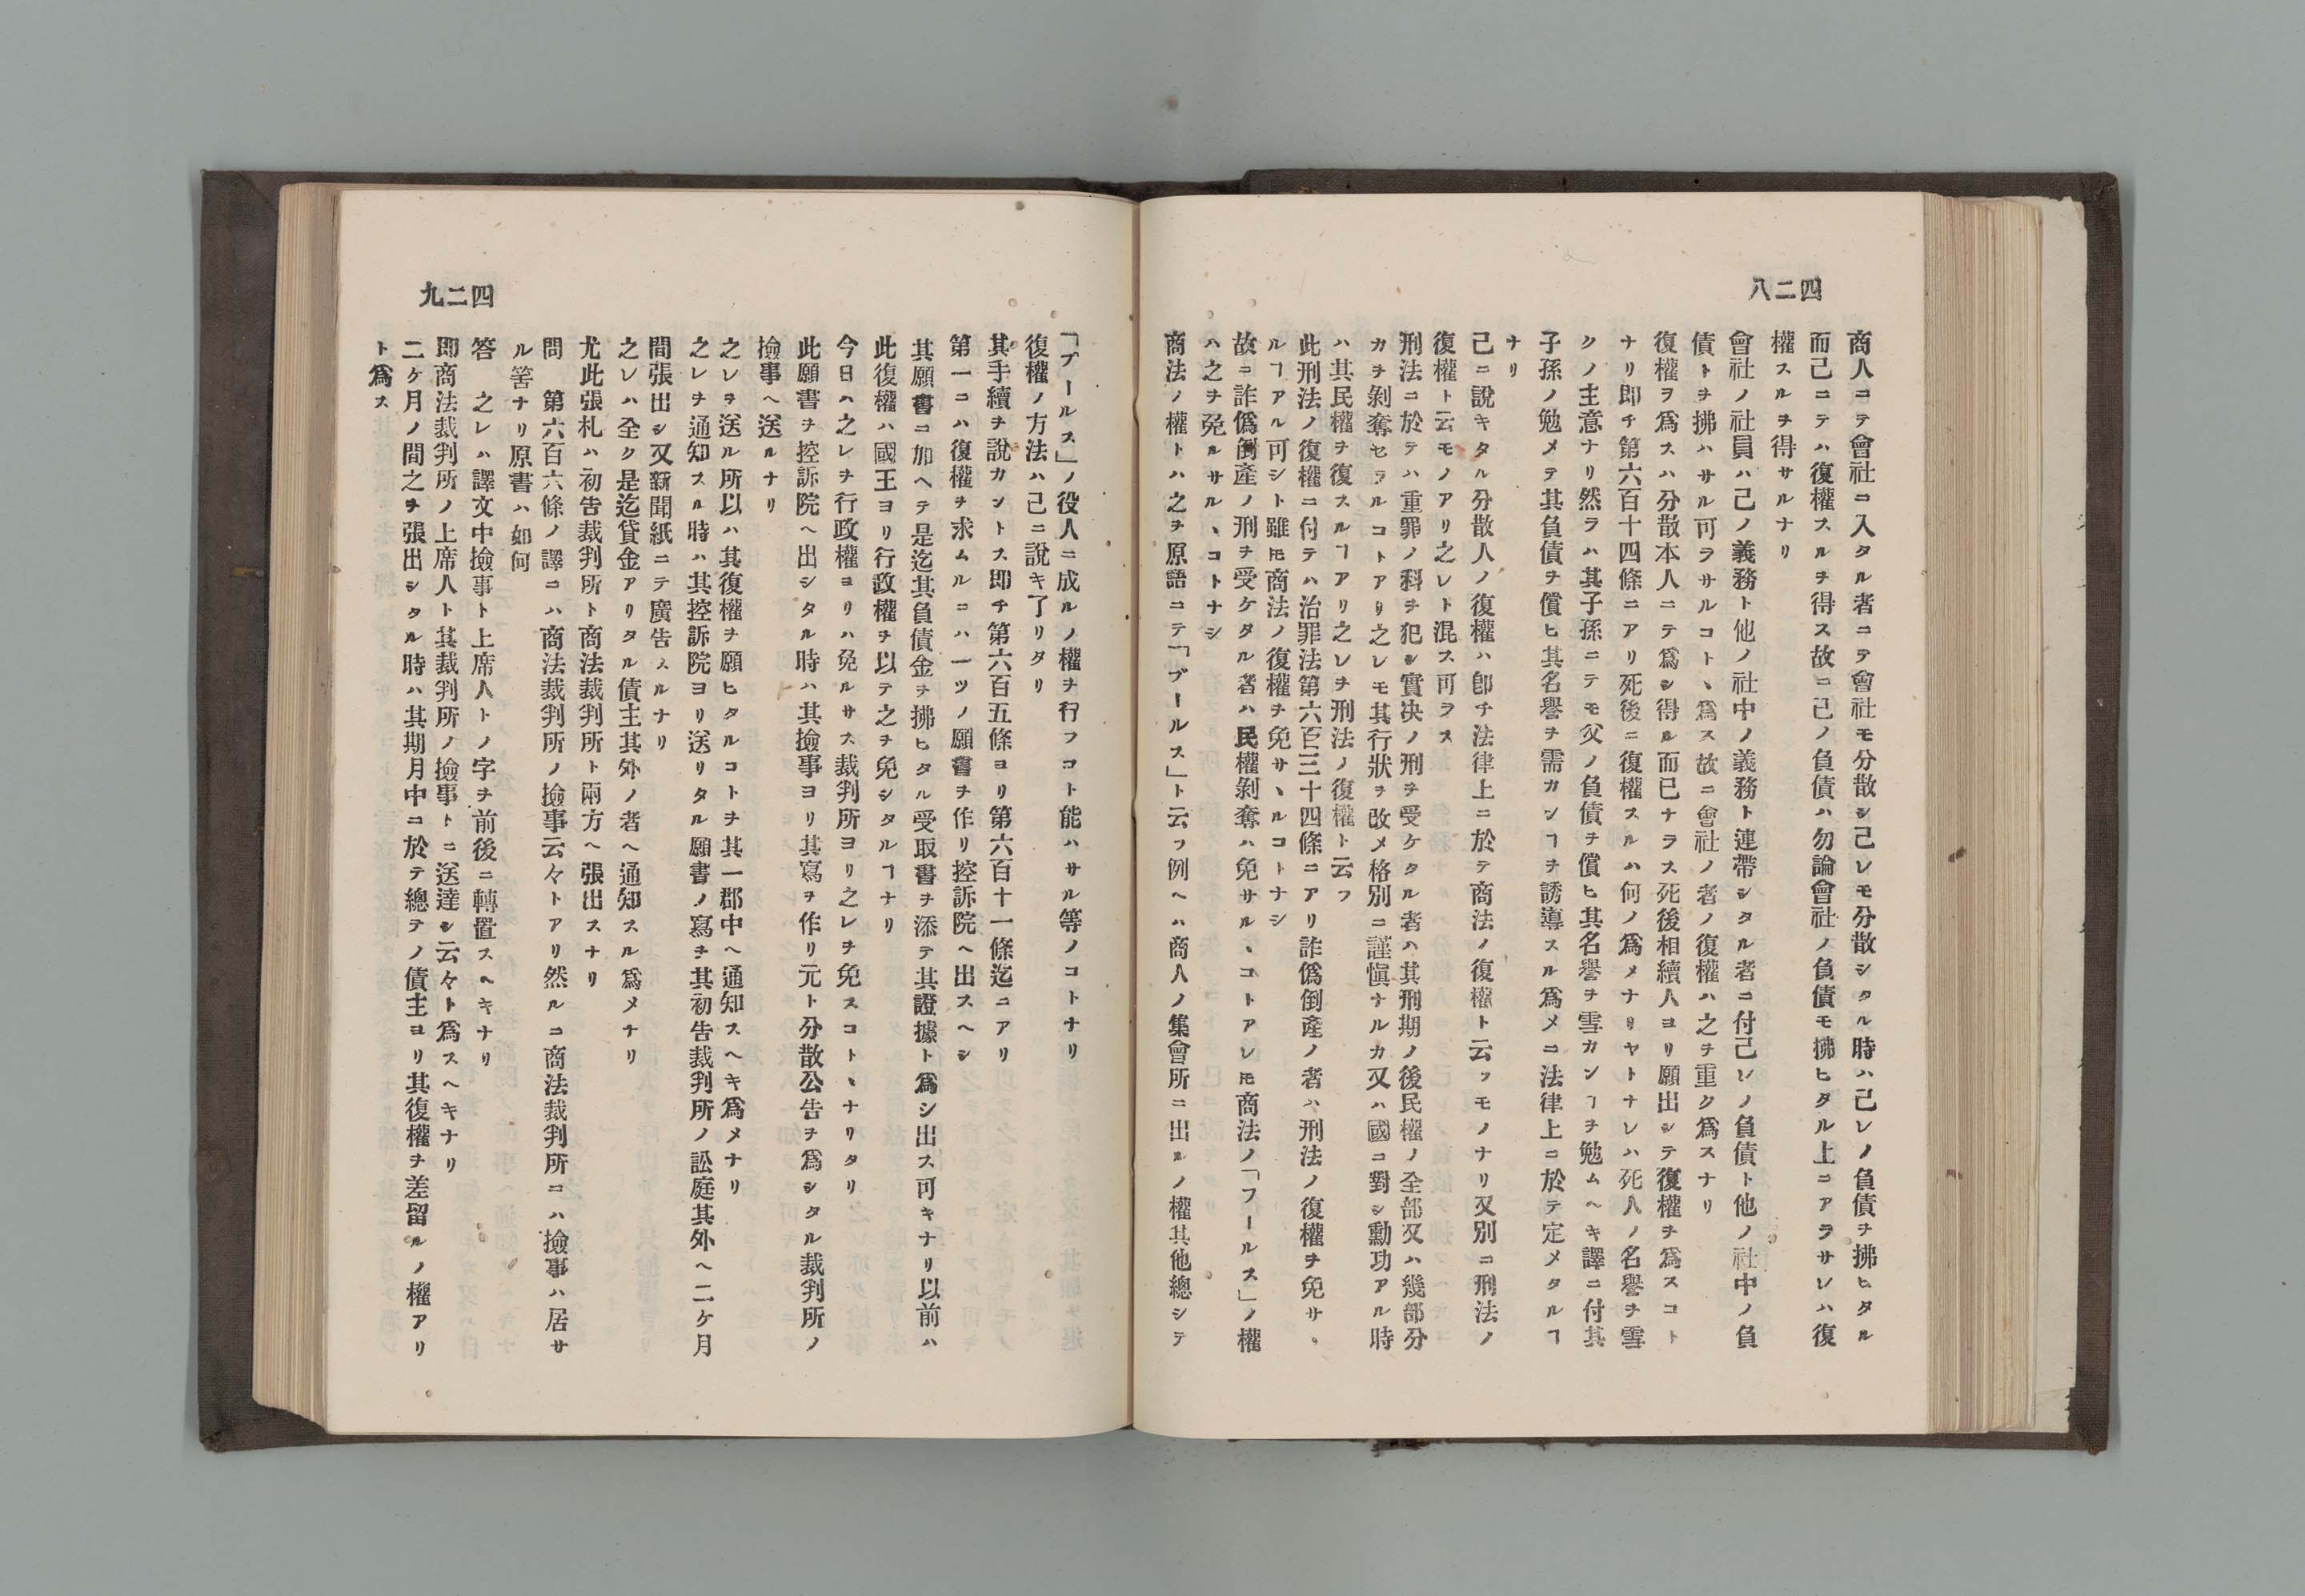 四二八
商人ニテ會社ニ入タル者ニテ會社モ分散シ己レモ分散シタル時ハ己レノ負債ヲ拂ヒタル
而己ニテハ復權スルヲ得ス故ニ己ノ負債ハ勿論會社ノ負債モ拂ヒタル上ニアラサレハ復
權スルヲ得サルナリ
會社ノ社員ハ己ノ義務ト他ノ社中ノ義務ト連帶シタル者ニ付己レノ負債ト他ノ社中ノ負
債トヲ拂ハサル可ラサルコトヽ爲ス故ニ會社ノ者ノ復權ハ之ヲ重ク爲スナリ
復權ヲ爲スハ分散本人ニテ爲シ得ル而已ナラス死後相續人ヨリ願出シテ復權ヲ爲スコト
ナリ即チ第六百十四條ニアリ死後ニ復權スルハ何ノ爲メナリヤトナレハ死人ノ名譽ヲ雪
クノ主意ナリ然ラハ其子孫ニテモ父ノ負債ヲ償ヒ其名譽ヲ雪カンヿヲ勉ムヘキ譯ニ付其
子孫ノ勉メテ其負債ヲ償ヒ其名譽ヲ需カンヿヲ誘導スル爲メニ法律上ニ於テ定メタルヿ
ナリ
己ニ說キタル分散人ノ復權ハ卽チ法律上ニ於テ商法ノ復權ト云フモノナリ又別ニ刑法ノ
復權ト云モノアリ之レト混ス可ラス
刑法ニ於テハ重罪ノ科ヲ犯シ實决ノ刑ヲ受ケタル者ハ其刑期ノ後民權ノ全部又ハ幾部分
カヲ剝奪セラルコトアリ之レモ其行狀ヲ改メ格別ニ謹愼ナルカ又ハ國ニ對シ勳功アル時
ハ其民權ヲ復スルヿアリ之レヲ刑法ノ復權ト云フ
此刑法ノ復權ニ付テハ治罪法第六百三十四條ニアリ詐僞倒產ノ者ハ刑法ノ復權ヲ免サヽ
ルヿアル可シト雖𪜈商法ノ復權ヲ免サヽルコトナシ
故ニ詐僞倒產ノ刑ヲ受ケタル者ハ民權剝奪ハ免サルヽコトアレ𪜈商法ノ「フールス」ノ權
ハ之ヲ免ルサルヽコトナシ
商法ノ權トハ之ヲ原語ニテ「ブールス」ト云フ例ヘハ商人ノ集會所ニ出ルノ權其他總シテ
四二九
「ブールス」ノ役人ニ成ルノ權ヲ行フコト能ハサル等ノコトナリ
復權ノ方法ハ己ニ說キ了リタリ
其手續ヲ說カントス即チ第六百五條ヨリ第六百十一條迄ニアリ
第一ニハ復權ヲ求ムルニハ一ツノ願書ヲ作リ控訴院ヘ出スヘシ
其願書ニ加ヘテ是迄其負債金ヲ拂ヒタル受取書ヲ添テ其證據ト爲シ出ス可キナリ以前ハ
此復權ハ國王ヨリ行政權ヲ以テ之ヲ免シタルヿナリ
今日ハ之レヲ行政權ヨリハ免ルサス裁判所ヨリ之レヲ免スコトヽナリタリ
此願書ヲ控訴院ヘ出シタル時ハ其撿事ヨリ其寫ヲ作リ元ト分散公告ヲ爲シタル裁判所ノ
撿事ヘ送ルナリ
之レヲ送ル所以ハ其復權ヲ願ヒタルコトヲ其一郡中ヘ通知スヘキ爲メナリ
之レヲ通知スル時ハ其控訴院ヨリ送リタル願書ノ寫ヲ其初告裁判所ノ訟庭其外ヘ二ケ月
間張出シ又新聞紙ニテ廣告スルナリ
之レハ全ク是迄貸金アリタル債主其外ノ者ヘ通知スル爲メナリ
尤此張札ハ初告裁判所ト商法裁判所ト兩方ヘ張出スナリ
問　第六百六條ノ譯ニハ商法裁判所ノ撿事云々トアリ然ルニ商法裁判所ニハ撿事ハ居サ
ル筈ナリ原書ハ如何
答　之レハ譯文中撿事ト上席人トノ字ヲ前後ニ轉置スヘキナリ
即商法裁判所ノ上席人ト其裁判所ノ撿事トニ送達シ云々ト爲スヘキナリ
二ケ月ノ間之ヲ張出シタル時ハ其期月中ニ於テ總テノ債主ヨリ其復權ヲ差留ルノ權アリ
ト爲ス